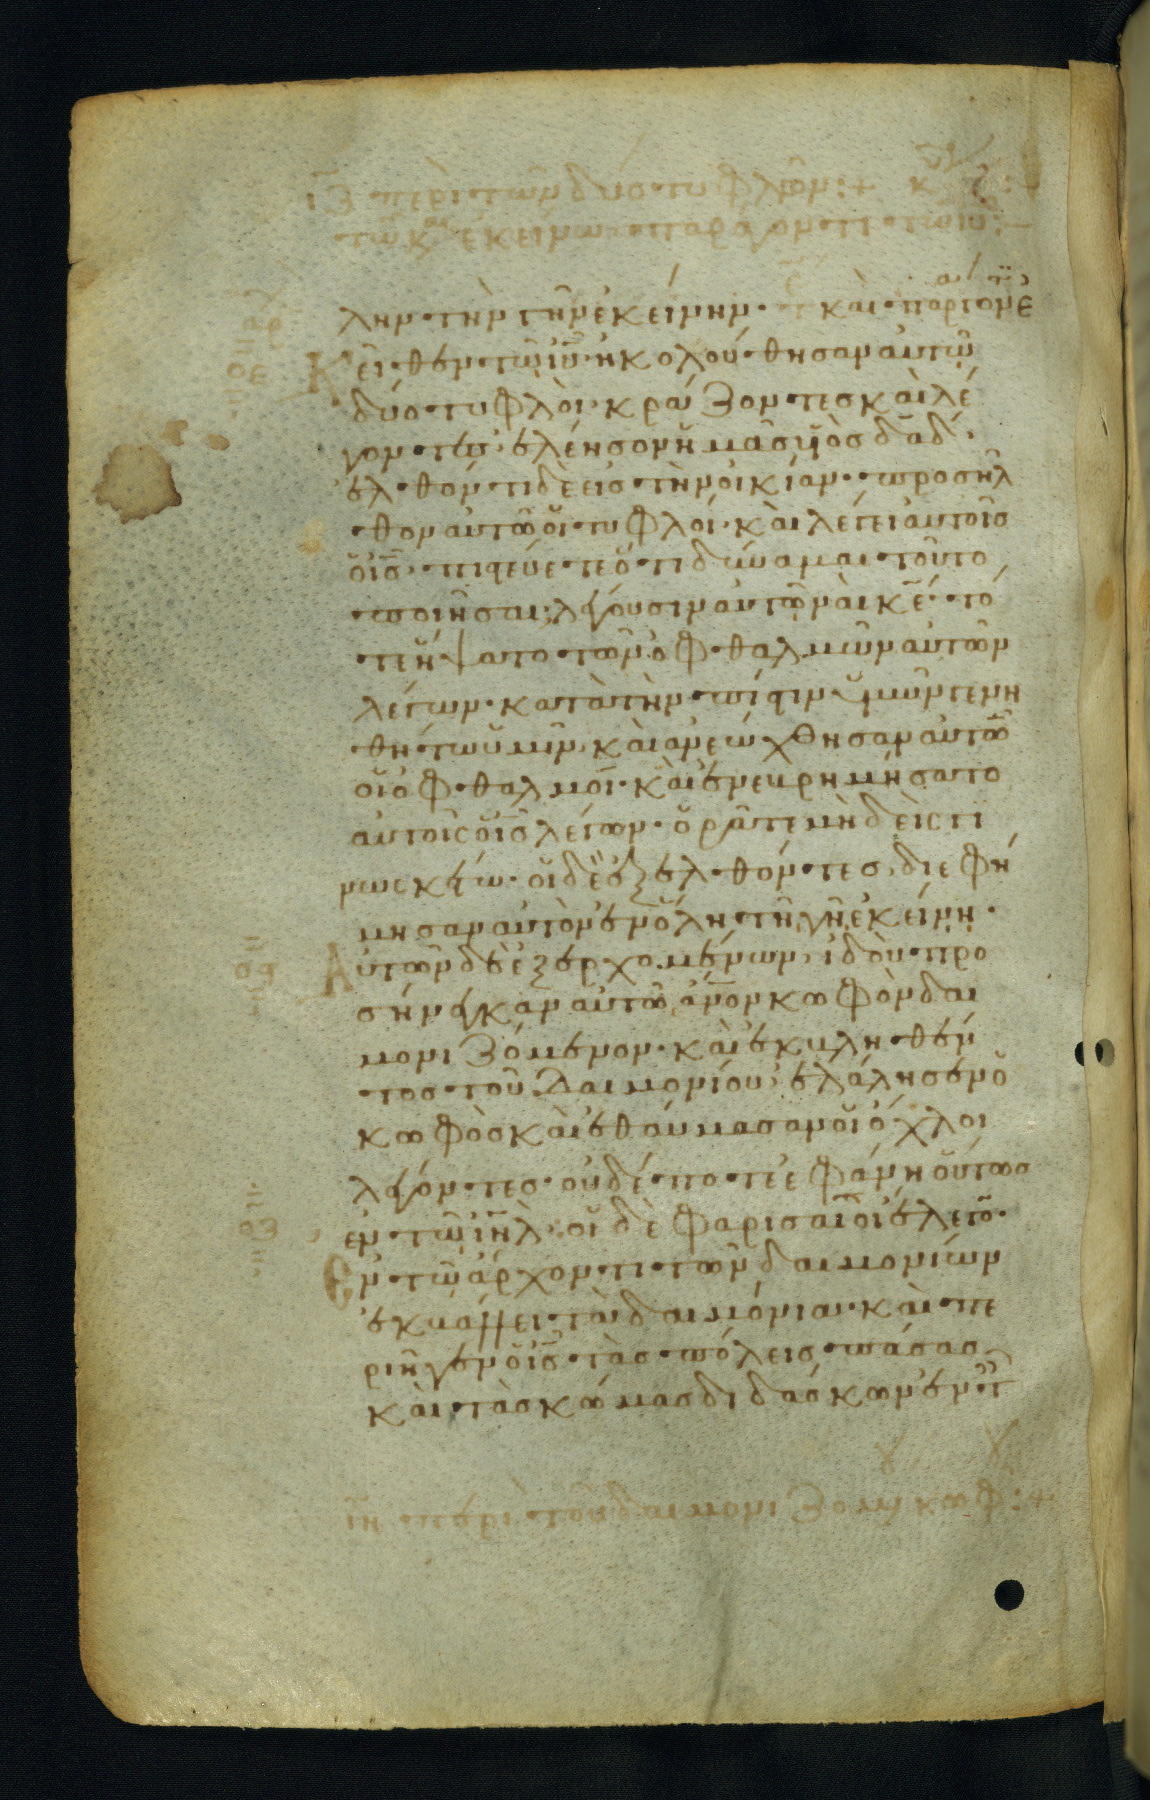 ιζ περὶ τῶν δύο τυφλῶν:+
τῶ κῶ ἐκείνω παράγοντι τῶ ιυ:-
λην τὴν γῆν ἐκείνην. καὶ παράγοντι ἐ
Κεῖθεν τῶ ιυ ἠκολούθησαν αυτῶ
δύο τυφλοὶ κράζοντες καὶ λέ
γοντες. ἐλέησον ἡμᾶς υἱὸς δαδ.
ἐλθόντι δὲ εἰς τὴν οἰκίαν. προσῆλ
θον αυτῶ οἱ τυφλοί. καὶ λέγει αυτοῖς
ὁ ις. πιστεύετε ὅτι δύναμαι τοῦτο
ποιῆσαι. λέγουσιν αυτῶ ναὶ κε. τό
τε ἥψατο τῶν ὀφθαλμῶν αυτῶν
λέγων. κατὰ τὴν πίστιν ὑμῶν γενη
θήτω ὑμῖν. καὶ ἀνεώχθησαν αυτῶν
οἱ ὀφθαλμοί. καὶ ἐνευρημήσατο
αυτοῖς ὁ ις λέγων. ὁρᾶτε μηδεὶς γι
νωσκέτω. οἱ δὲ ἐξελθόντες διεφή
μησαν αυτὸν ἐν ὅλη τῆ γῆ ἐκείνη.
Αυτῶν δὲ ἐξερχομένων. ἰδοὺ προ
σήνεγκαν αυτῶ ανον κωφὸν δαι
μονιζόμενον. καὶ ἐκβληθέν
τος τοῦ δαιμονίου. ἐλάλησεν ὁ
κωφὸς καὶ ἐθαύμασαν οἱ ὄχλοι
λέγοντες. οὐδέποτε ἐφάνη οὕτως
ἐν τῶ ιηλ. οἱ δὲ φαρισαῖοι ἔλεγον.
Ἐν τῶ ἄρχοντι τῶν δαιμονίων
ἐκβάλλει τὰ δαιμόνια. καὶ πε
ριῆγεν ὁ ις τὰς πόλεις πάσας
καὶ τὰς κώμας διδάσκων ἐν τ
ιη περὶ τοῦ δαιμονιζομένου κωφ:+